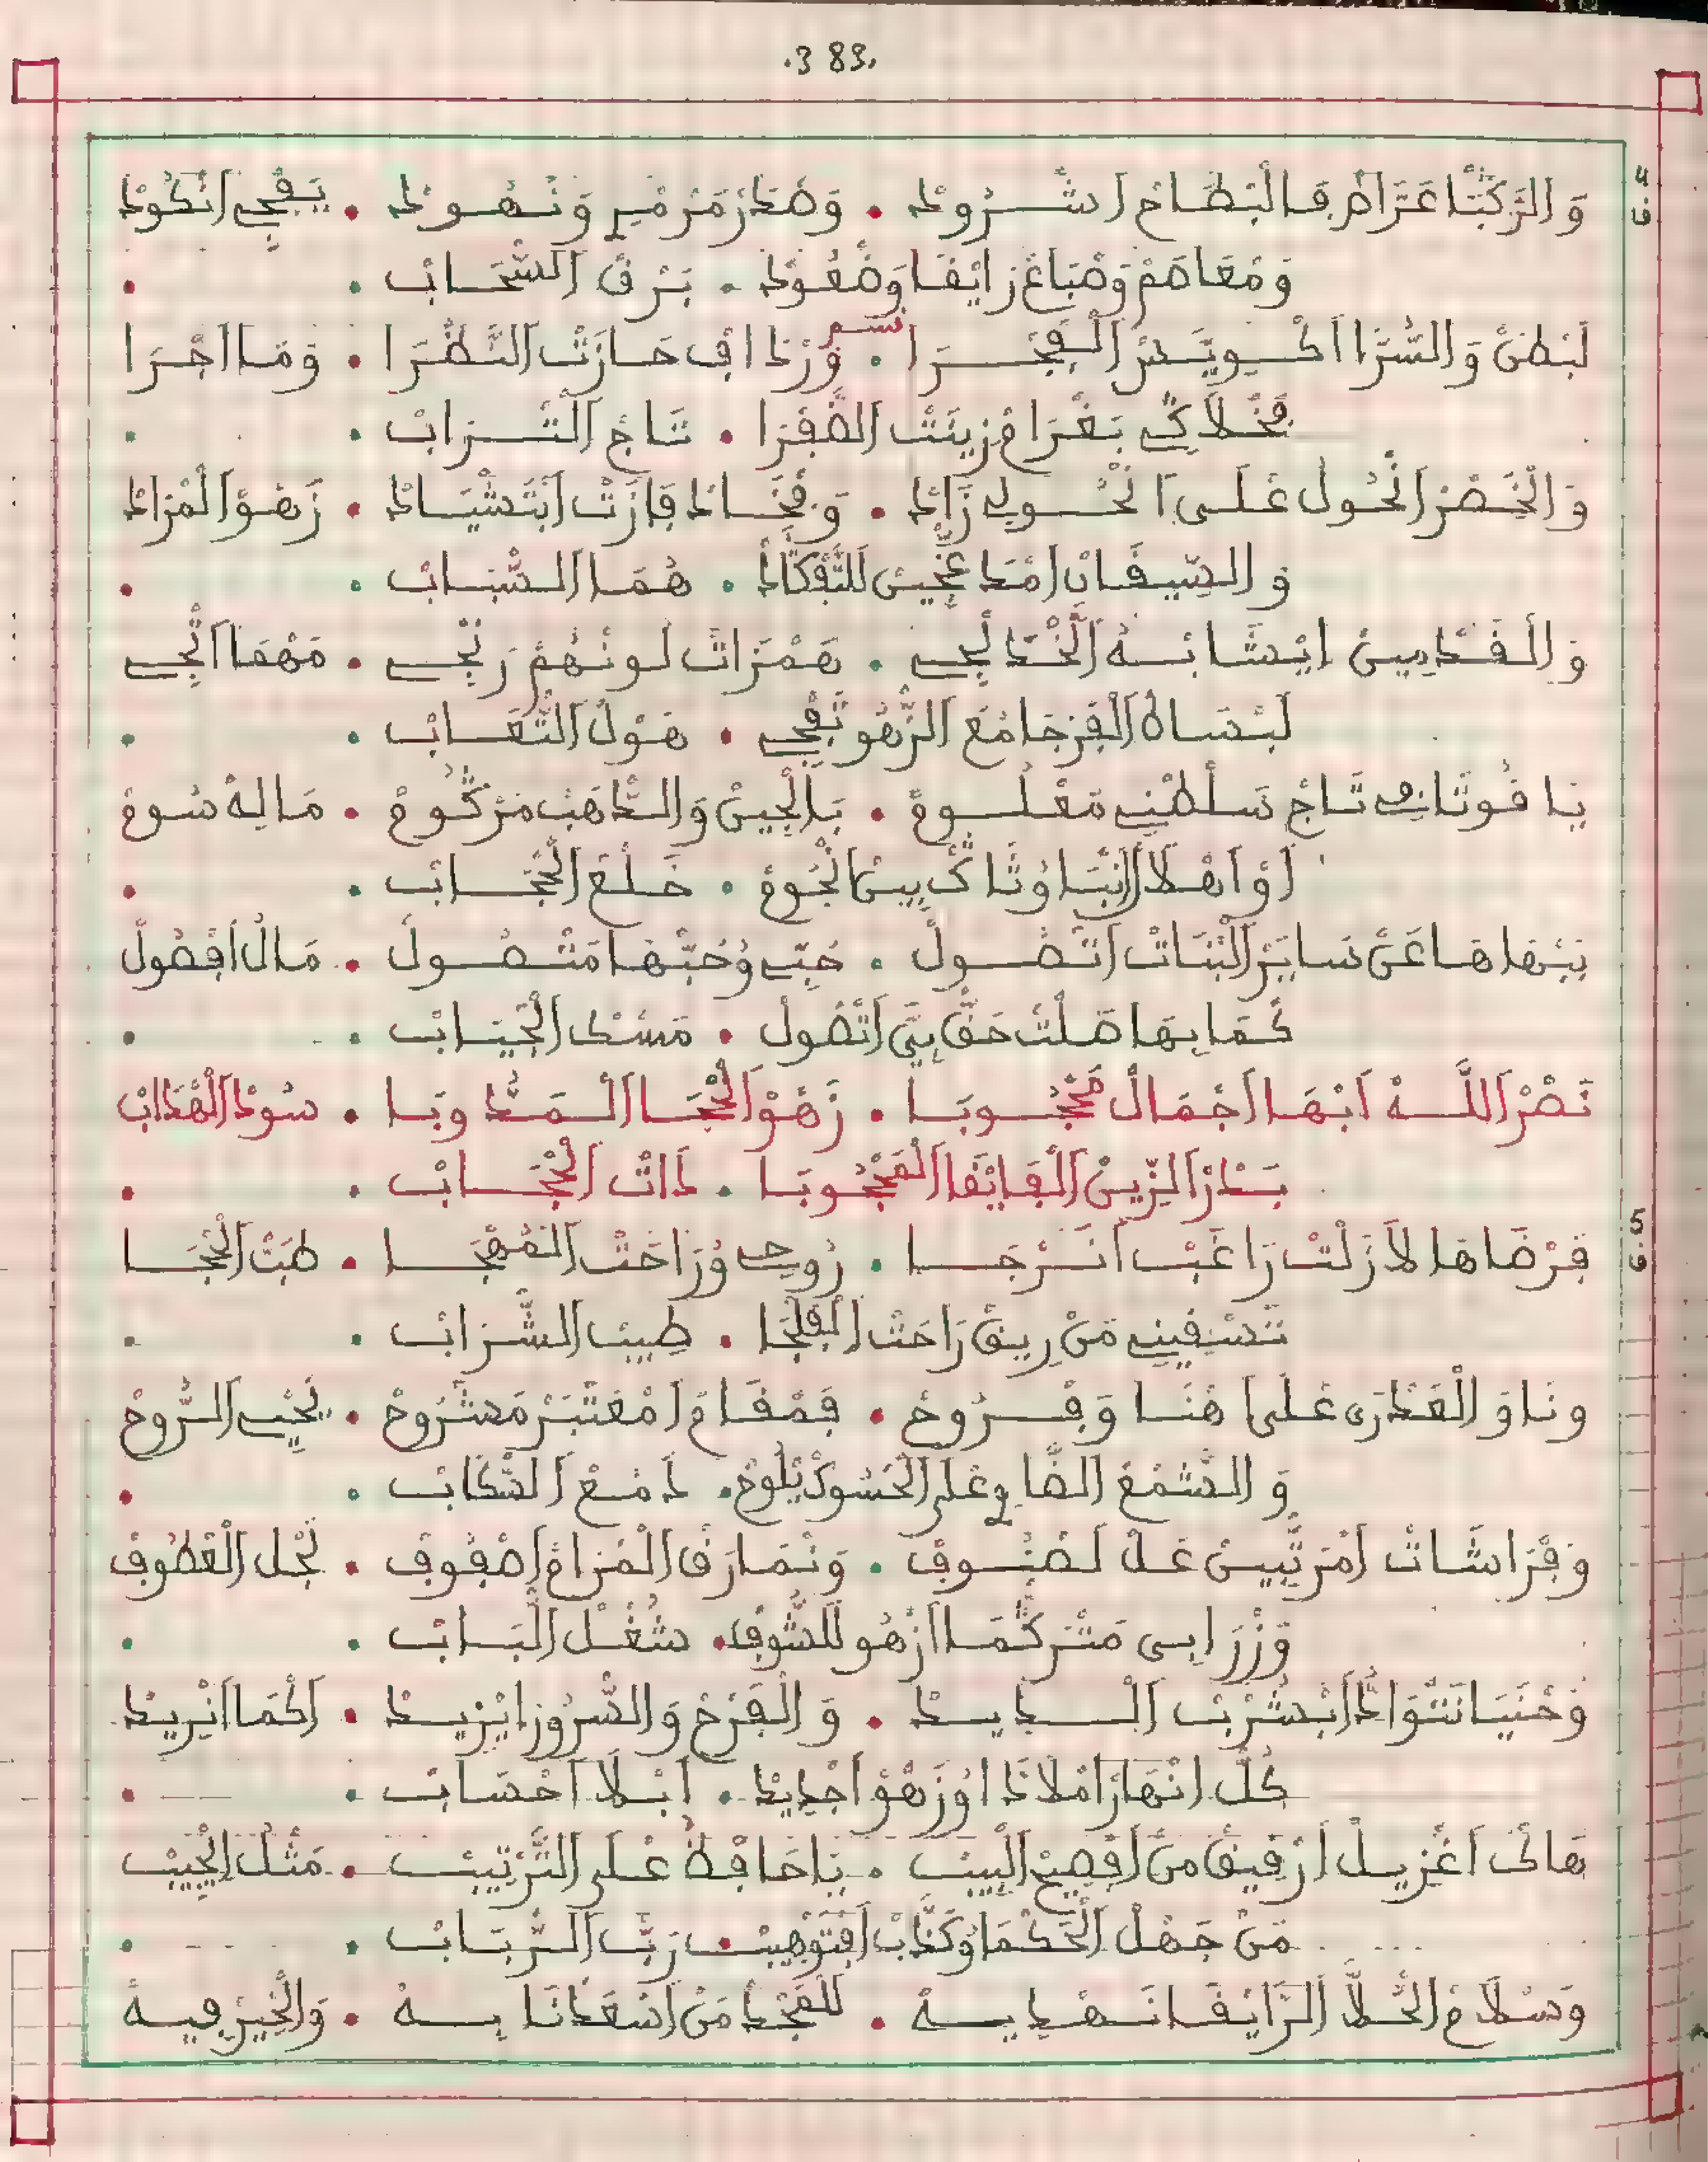 .383.
وَالرَّكْبَا عَرَاضْ فَالْبَطَاحْ اشْرُودْ • وَصْدَرْ مَرْمْرِ وَنْهُودْ • يَفْجِي انْكُودْ
وَمْعَاصَمْ وَصْبَاعْ زَايْفَا وَعْقُودْ • بَرْقْ السّْحَابْ •
لَبْطَنْ وَالسُّرَّا اكْوِيَّسْ الْفِجْرَا • وْرْدَافْ حَازَتْ النَّظْرَا • وَمَا اجْرَا
فَخْلَاكِي بَغْرَامْ زِينَتْ الصَّفْرَا • تَاجْ التْرَابْ •
وَالْخَصْرْ انْحُولْ عْلَى انْحُولِي زَادْ • وَفْخَادْ فَازَتْ ابْتَشْيَادْ • زَهْوْ الْمْرَادْ
وَالسِّيقَانْ امْدَعّْجِينْ لَلتَّوْكَادْ • هُمَا السّْبَابْ •
وَالْقَدْمِينْ ايْشَابَهْ الْخْدَلَّجِي • هَمْزَاتْ لُونْهُمْ زَنْجِي • مَهْمَا اتْجِي
لَبْسَاطْ الْفَرْجَا مْعَ الزّْهُو تَفْجِي • هَوْلْ التّْعَابْ •
يَا فُوتَانِي تَاجْ سَلْطْنِي مَعْلُومْ • بَالْجِينْ وَالدّْهَبْ مَرْكُومْ • مَالِهْ سُومْ
أَوْ اهْلَالْ انْبَا وْتَاكْ بِينْ انْجُومْ • خَلْعْ الْحْجَابْ •
بِبْهَاهَا عَنْ سَايَرْ الْبْنَاتْ اتْصُولْ • حُبِّي وْحُبّْهَا مَتْصُولْ • مَالْ افْضُولْ
كْمَا بِهَا صَلْتْ حَقّْ بِيَّ اتْصُولْ • مَسْكْ الْجْيَابْ •
نَصْرْ اللَّهْ ابْهَا اجْمَالْ مَحْجُوبَا • زَهْوْ الْحْجَا الْمَدُّوبَا • سُودْ الْهْدَابْ
بَدْرْ الزِّينْ الْفَايْقَا الْمَحْجُوبَا • دَاتْ الْحْجَابْ •
فَرْضَاهَا لَازَلْتْ رَاغَبْ انَرْجَا • رُوحِي وْرَاحَتْ الْمُهْجَا • طَبّْ الْحْجَا
تَسْقِينِي مَنْ رِيقْ رَاحَتْ الْفَلْجَا • طِيبْ الشّْرَابْ •
وَنَاوْ الْعَدْرَى عْلَى هْنَا وَفْرُوحْ • فَمْقَامْ امْعَتْبَرْ مَشْرُوحْ • يَحْيِي الرُّوحْ
وَالشّْمَعْ الضَّاوِي عْلَى الْحْسُودْ يْلُوحْ • دَمْعْ السْكَابْ •
وَفْرَاشَاتْ امْرَتّْبِينْ عَلْ لَصْنُوفْ • وَنْمَارَقْ الْمْرَامْ اصْفُوفْ • نَجْلْ الْعْطُوفْ
وَزْرَابِي مَتْرَكْمَا ازْهُو لَلشُّوفْ • شُغْلْ الْبَابْ •
وَحْنَيَا نَتْوَادّْ ابْشُرْبْ الدِيدْ • وَالْفَرْحْ وَالسّْرُورْ ايْزِيدْ • اكْمَا انْرِيدْ
كُلّْ انْهَارْ امْلَادَا وْزَهْوْ اجْدِيدْ • ابْلَا احْسَابْ •
هَاكْ اغْزِيلْ ارْقِيقْ مَنْ افْصِيحْ الْبِيبْ • يَا حَافْظْ عْلَى التَّرْتِيبْ • مَثْلْ الْجِيبْ
مَنْ جْهَلْ الْحَكْمَا وْكَدّْبْ افْتَوْهِيبْ • رَبّْ الرّْبَابْ •
وَسْلَامْ الْحُلَّا الرَّايْقَا نَهْدِيهْ • لَلْمَجْدْ مَنْ اسْعَدْنَا بِهْ • وَالْخِيرْ فِيهْ